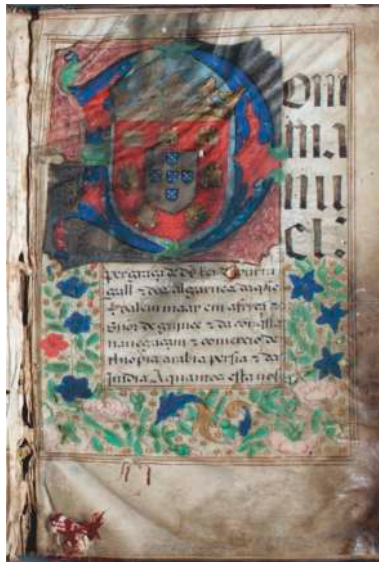 Dom
ma
nu
el:
per graça de ds Rei de purtu
gall & dos algarues daque
& dalem maar em africa se
nor de guinee & da conquista
nauegaçam & comercio de
thiopia arabia persia & da
India. A quantos esta nos